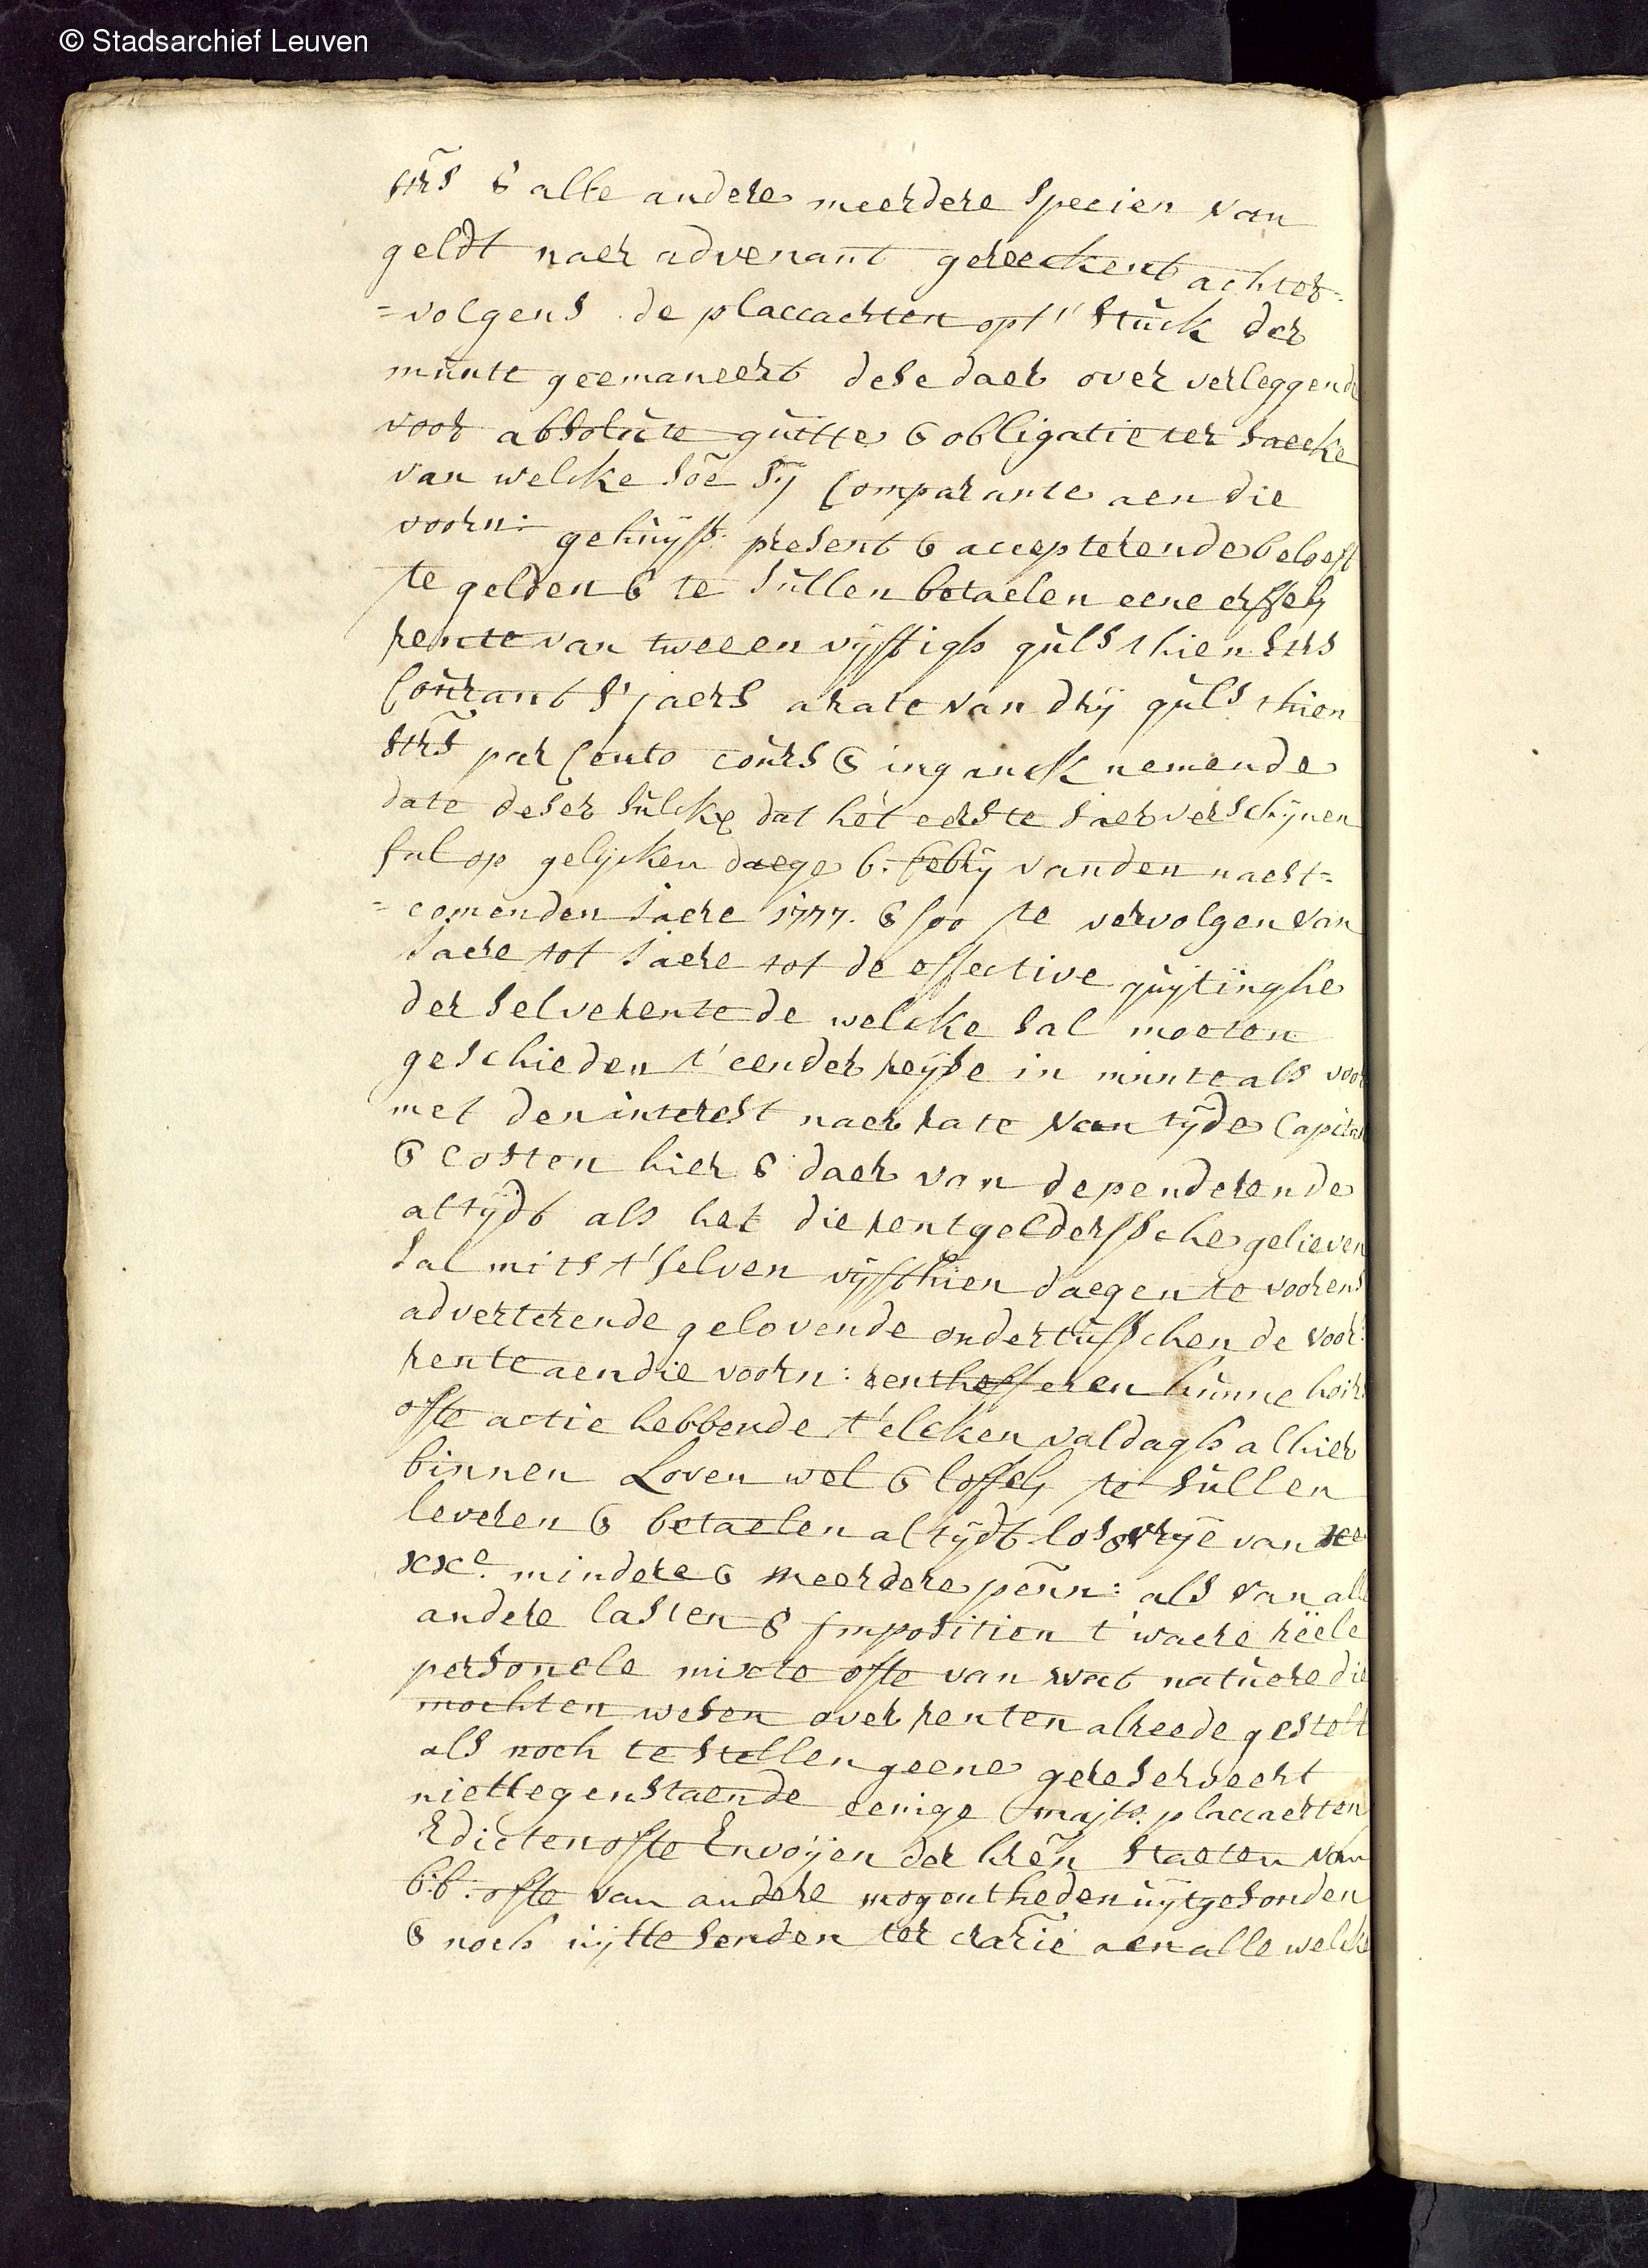 © Stadsarchief Leuven
strs̃ & alle andere meerdere specien van
geldt naer advenant gereeckent achter-
=volgens de placcaerten opt' stuck der
munte geemaneert dese daer over verleggende
voor absolute quitte & obligatie ter saecke
van welcke sõe sy Comparante aen die
voorn: gehuijss: present & accepterende beloeft
te gelden & te sullen betaelen eene erffel.
rente van tween vyfftigh guls thien strs
Courant s'jaers a rate van dry guls thien
strs̃ per Cento cours & inganck nemende
date deser sulckx dat hèt eerste jaer verschynen
sal op gelycken daege 6: febry vanden naest=
=comenden jaere 1777. & soo te vervolgen van
jaere tot jaere tot de effective quytinghe
der selve rente de welcke sal moeten
geschieden t'eender reyse in munte als voor
met den interest naer rate van tyde Capitael
& costen hier & daer van dependerende
altydt als het die rentgelderssche gelieven
sal mits t'selven vyffthien daegen te voorens
adverterende gelovende ondertusschen de voor:
rente aen die voorn: rentheffers en hunne hoirs
ofte actie hebbende t'elcken valdagh alhier
binnen Loven wel & loffel. te sullen
leveren & betaelen altydt los & vrye van xe
xxe. mindere & meerdere penn: als van alle
andere lasten & Impositien t'waere reële
personele mixte ofte van wat natuere die
mochten wesen over renten alreede gestelt
als noch te stellen geene gereserveert
niettegenstaende eenige Majts. placcaerten
Edicten ofte Envoijen der hrẽn Staeten van
b:b: ofte van andere mogentheden uytgesonden
& noch uytte senden ter crãrie aen alle welcke